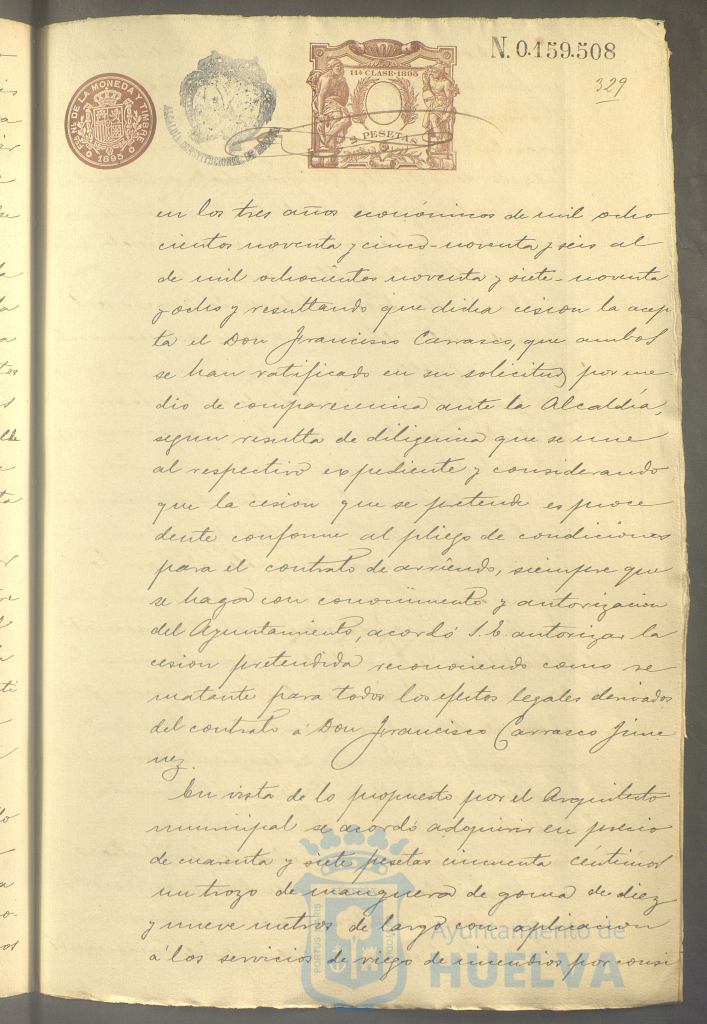 N. 0.159.508
329
FCA. NL. DE LA MONEDA Y TIMBRE
1895
ALCALDIA CONSTITUCIONAL DE HUELVA
11ª CLASE-1895
2 PESETAS
en los tres años económicos de mil ocho
cientos noventa y cinco-noventa y seis al
de mil ochocientos noventa y siete-noventa
y ocho y resultando que dicha cesion la acep
ta el Don Francisco Carrasco, que ambos
se han ratificado en su solicitud por me
dio de comparecencia ante la Alcaldía,
segun resulta de diligencia que se une
al respectivo expediente y considerando
que la cesion que se pretende es proce
dente conforme al pliego de condiciones
para el contrato de arriendo, siempre que
se haga con conocimiento y autorizacion
del Ayuntamiento, acordó S.E. autorizar la
cesion pretendida reconociendo como re
matante para todos los efectos legales derivados
del contrato á Don Francisco Carrasco Jime
nez.
En vista de lo propuesto por el Arquitecto
municipal se acordó adquirir en precio
de cuarenta y siete pesetas cincuenta céntimos
un trozo de manguera de goma de diez
y nueve metros de largo con aplicacion
á los servicios de riego de incendios por consi
PORTUS MARIS
Ayuntamiento de
HUELVA